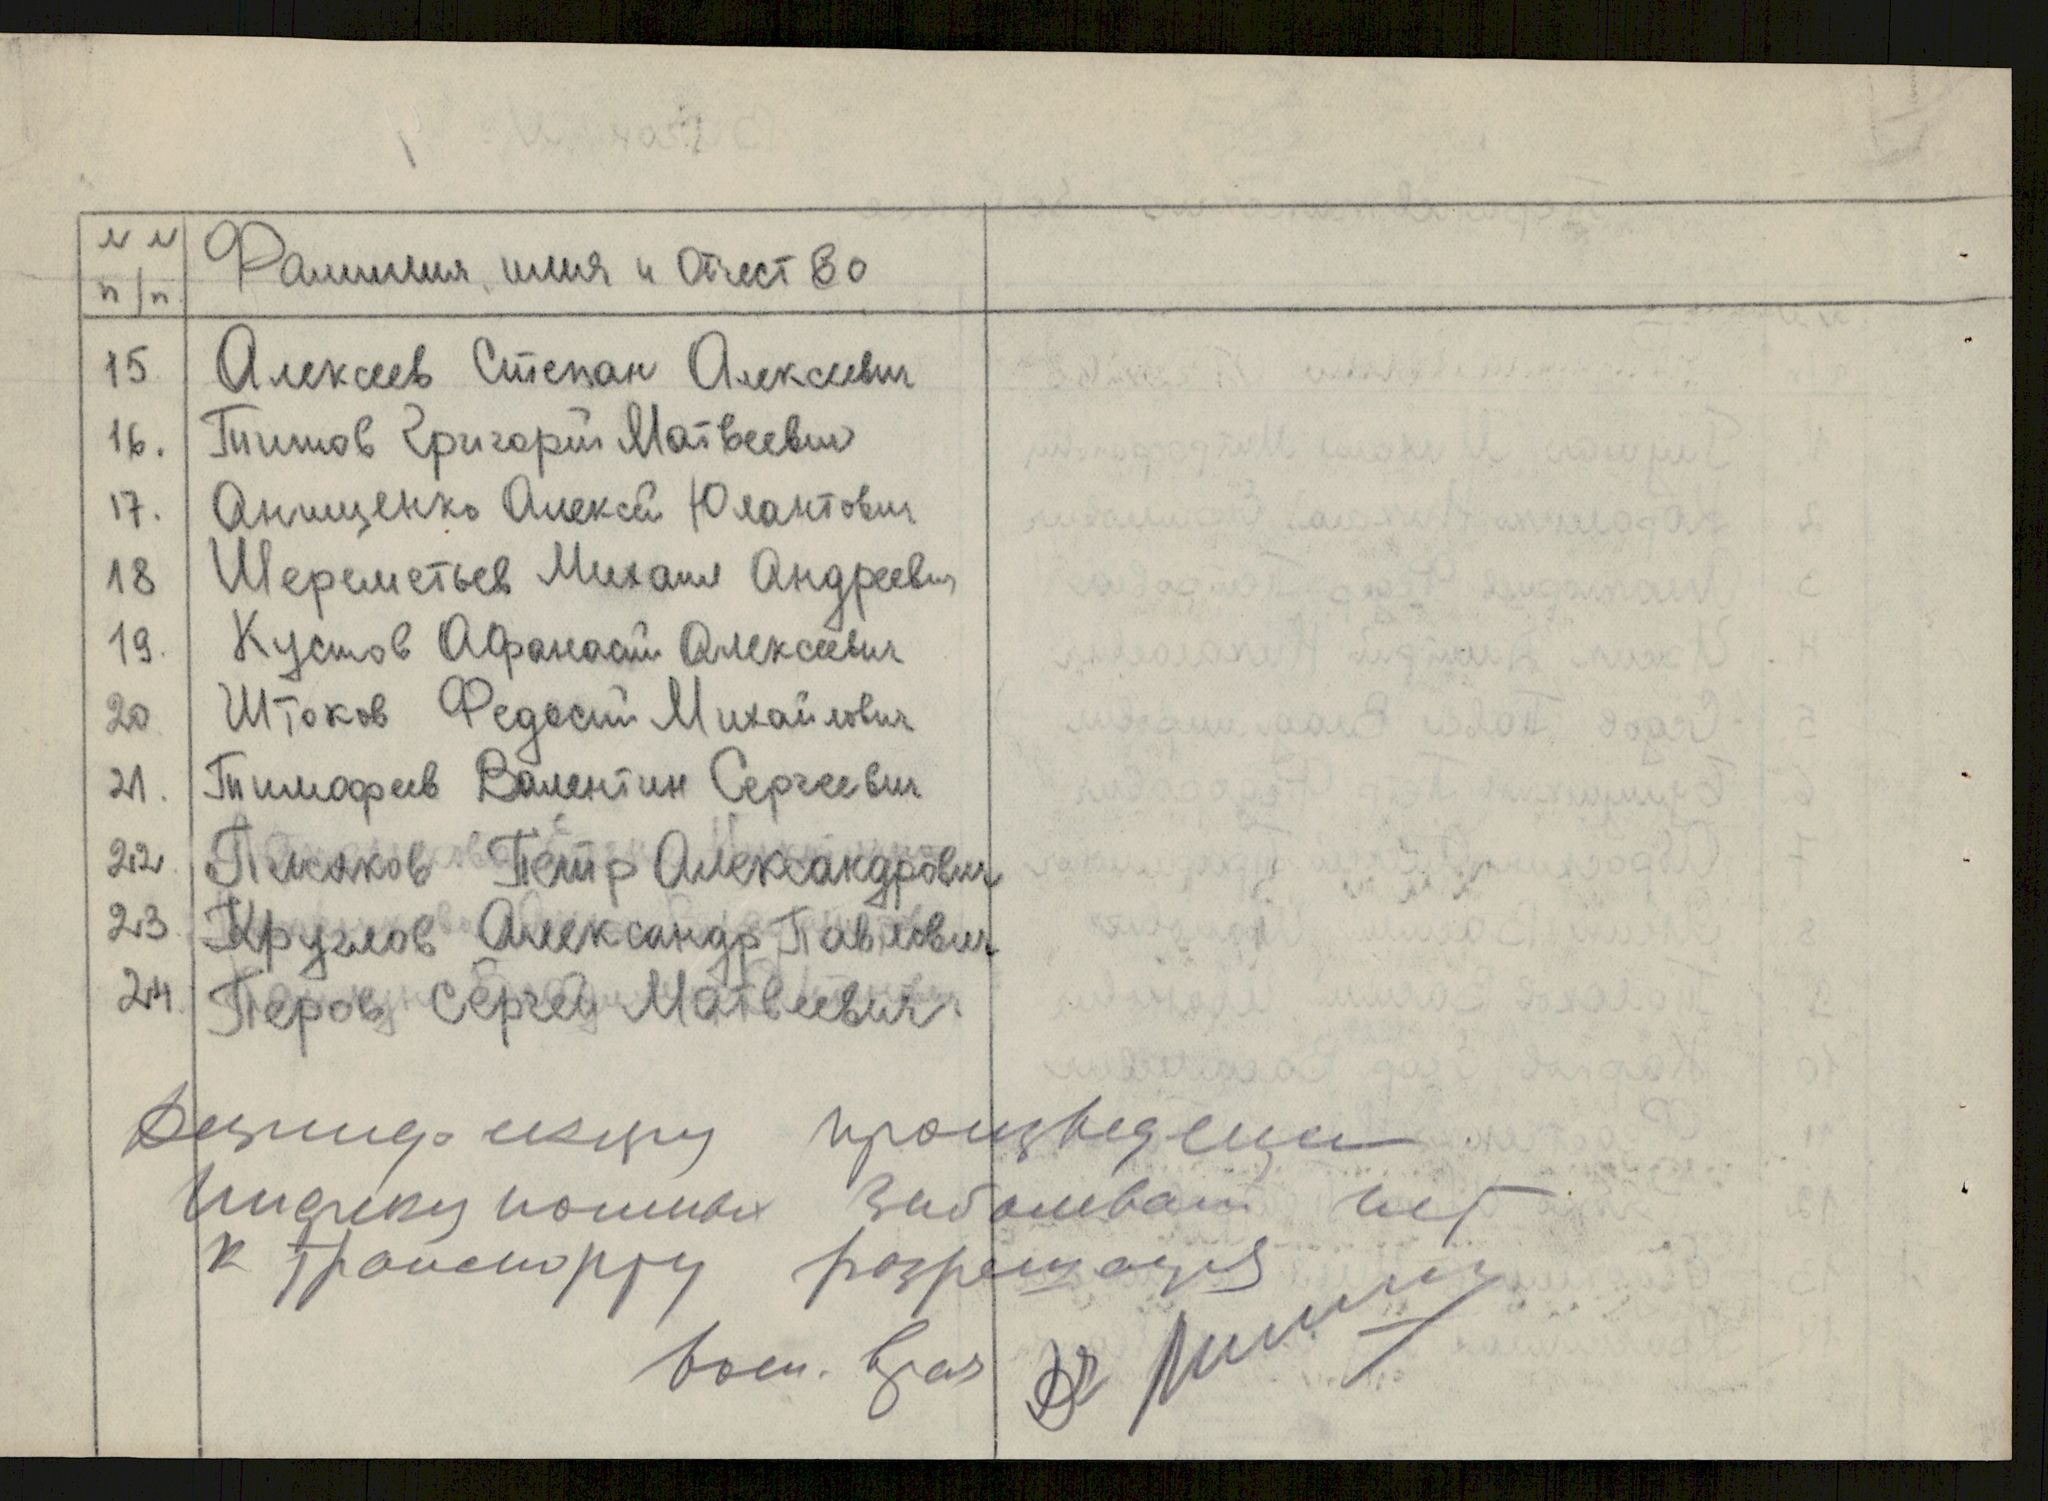 NN п/п Фамилия, имя и отчество
15 Алексеев Степан Алексеевич
16. Титов Григорий Матвеевич
17. Анищенко Алексей Юлантович
18 Шереметьев Михаил Андреевич
19. Кустов Афанасий Алексеевич
20 Штоков Федосий Михайлович
21. Тимофеев Валентин Сергеевич
22. Пижаков Пётр Александрович
23 Круглов Александр Павлович
24. Перов Сергей Матвеевич
Дезинфекция произведена
Инфекционных заболеваний нет
к транспорту разрешается
врач Dr